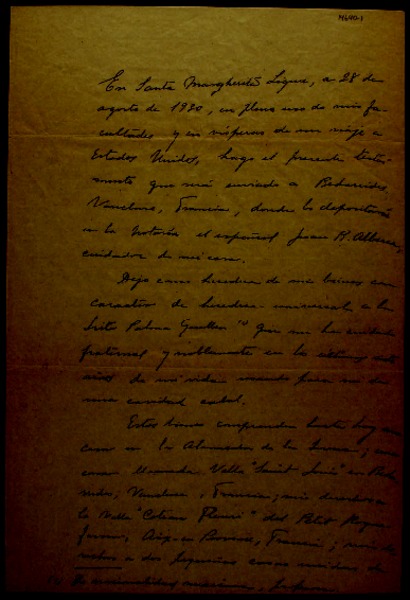 M690-1
En Santa Margherita Ligure, a 28 de
agosto de 1930, en pleno uso de mis fa-
cultades y en vísperas de un viaje a
Estados Unidos, hago el presente testa-
mento que será enviado a Bedarrides,
Vaucluse, Francia, donde lo depositará
en la Notaría el español Juan
cuidador de mi casa.
Dejo como heredera de mis bienes con
carácter de heredera universal a la
Srita Palma Guillén que me ha cuidado
fraternal y noblemente en los últimos
años de mi vida siendo para mí de
una caridad cabal.
Estos bienes comprenden hasta hoy una
casa en la Alameda de la Serena; una
casa llamada Villa "Saint Louis" en Beda-
rrides, Vaucluse, Francia; mis derechos a
la Villa "Coteau Fleuri" del Petit Roque-
favour, Aix-en Provence, Francia;
a dos pequeñas casas
de nacionalidad mexicana,